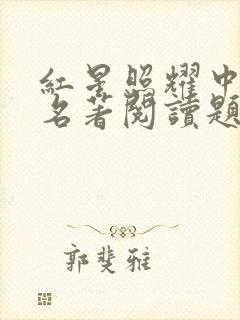 紅星照耀中
名著閱讀題
郭斐雅